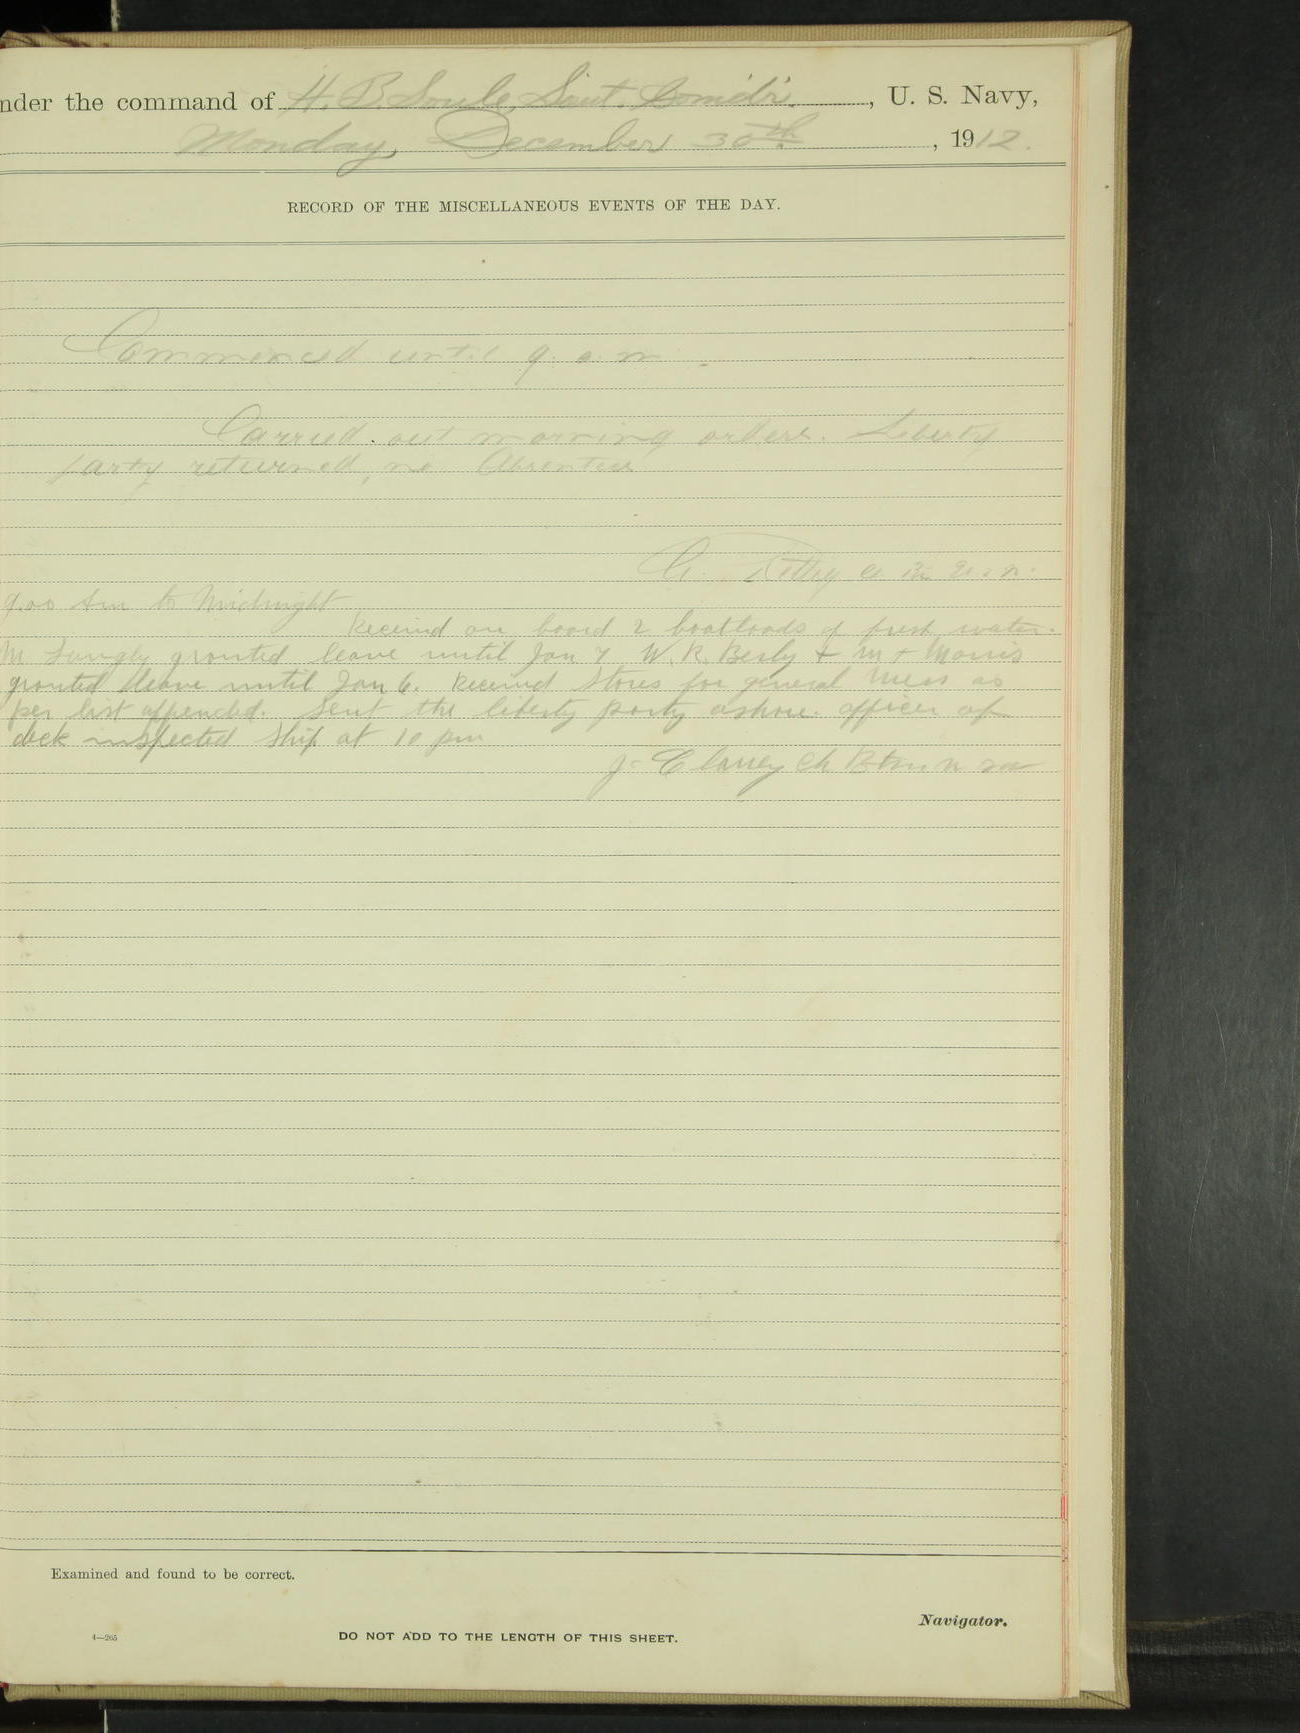 nder the command of H. B. Soule, Lieut. Comdr., U. S. Navy,
Monday, December 30th, 1912.
RECORD OF THE MISCELLANEOUS EVENTS OF THE DAY.
Commenced until 9 a. m.
Carried out morning orders. Liberty
party returned, no Absentees
G.
9.00 Am to Midnight
Received on board 2 boatloads of fresh water.
granted leave until Jan 7 W. R. Besly & M Morris
granted leave until Jan 6. Received Stores for general Mess as
per list appended. Sent the liberty party ashore. officer of
deck inspected Ship at 10 pm
J. Clancy Ch Btsn U S N
Examined and found to be correct.
Navigator.
4—265
DO NOT ADD TO THE LENGTH OF THIS SHEET.